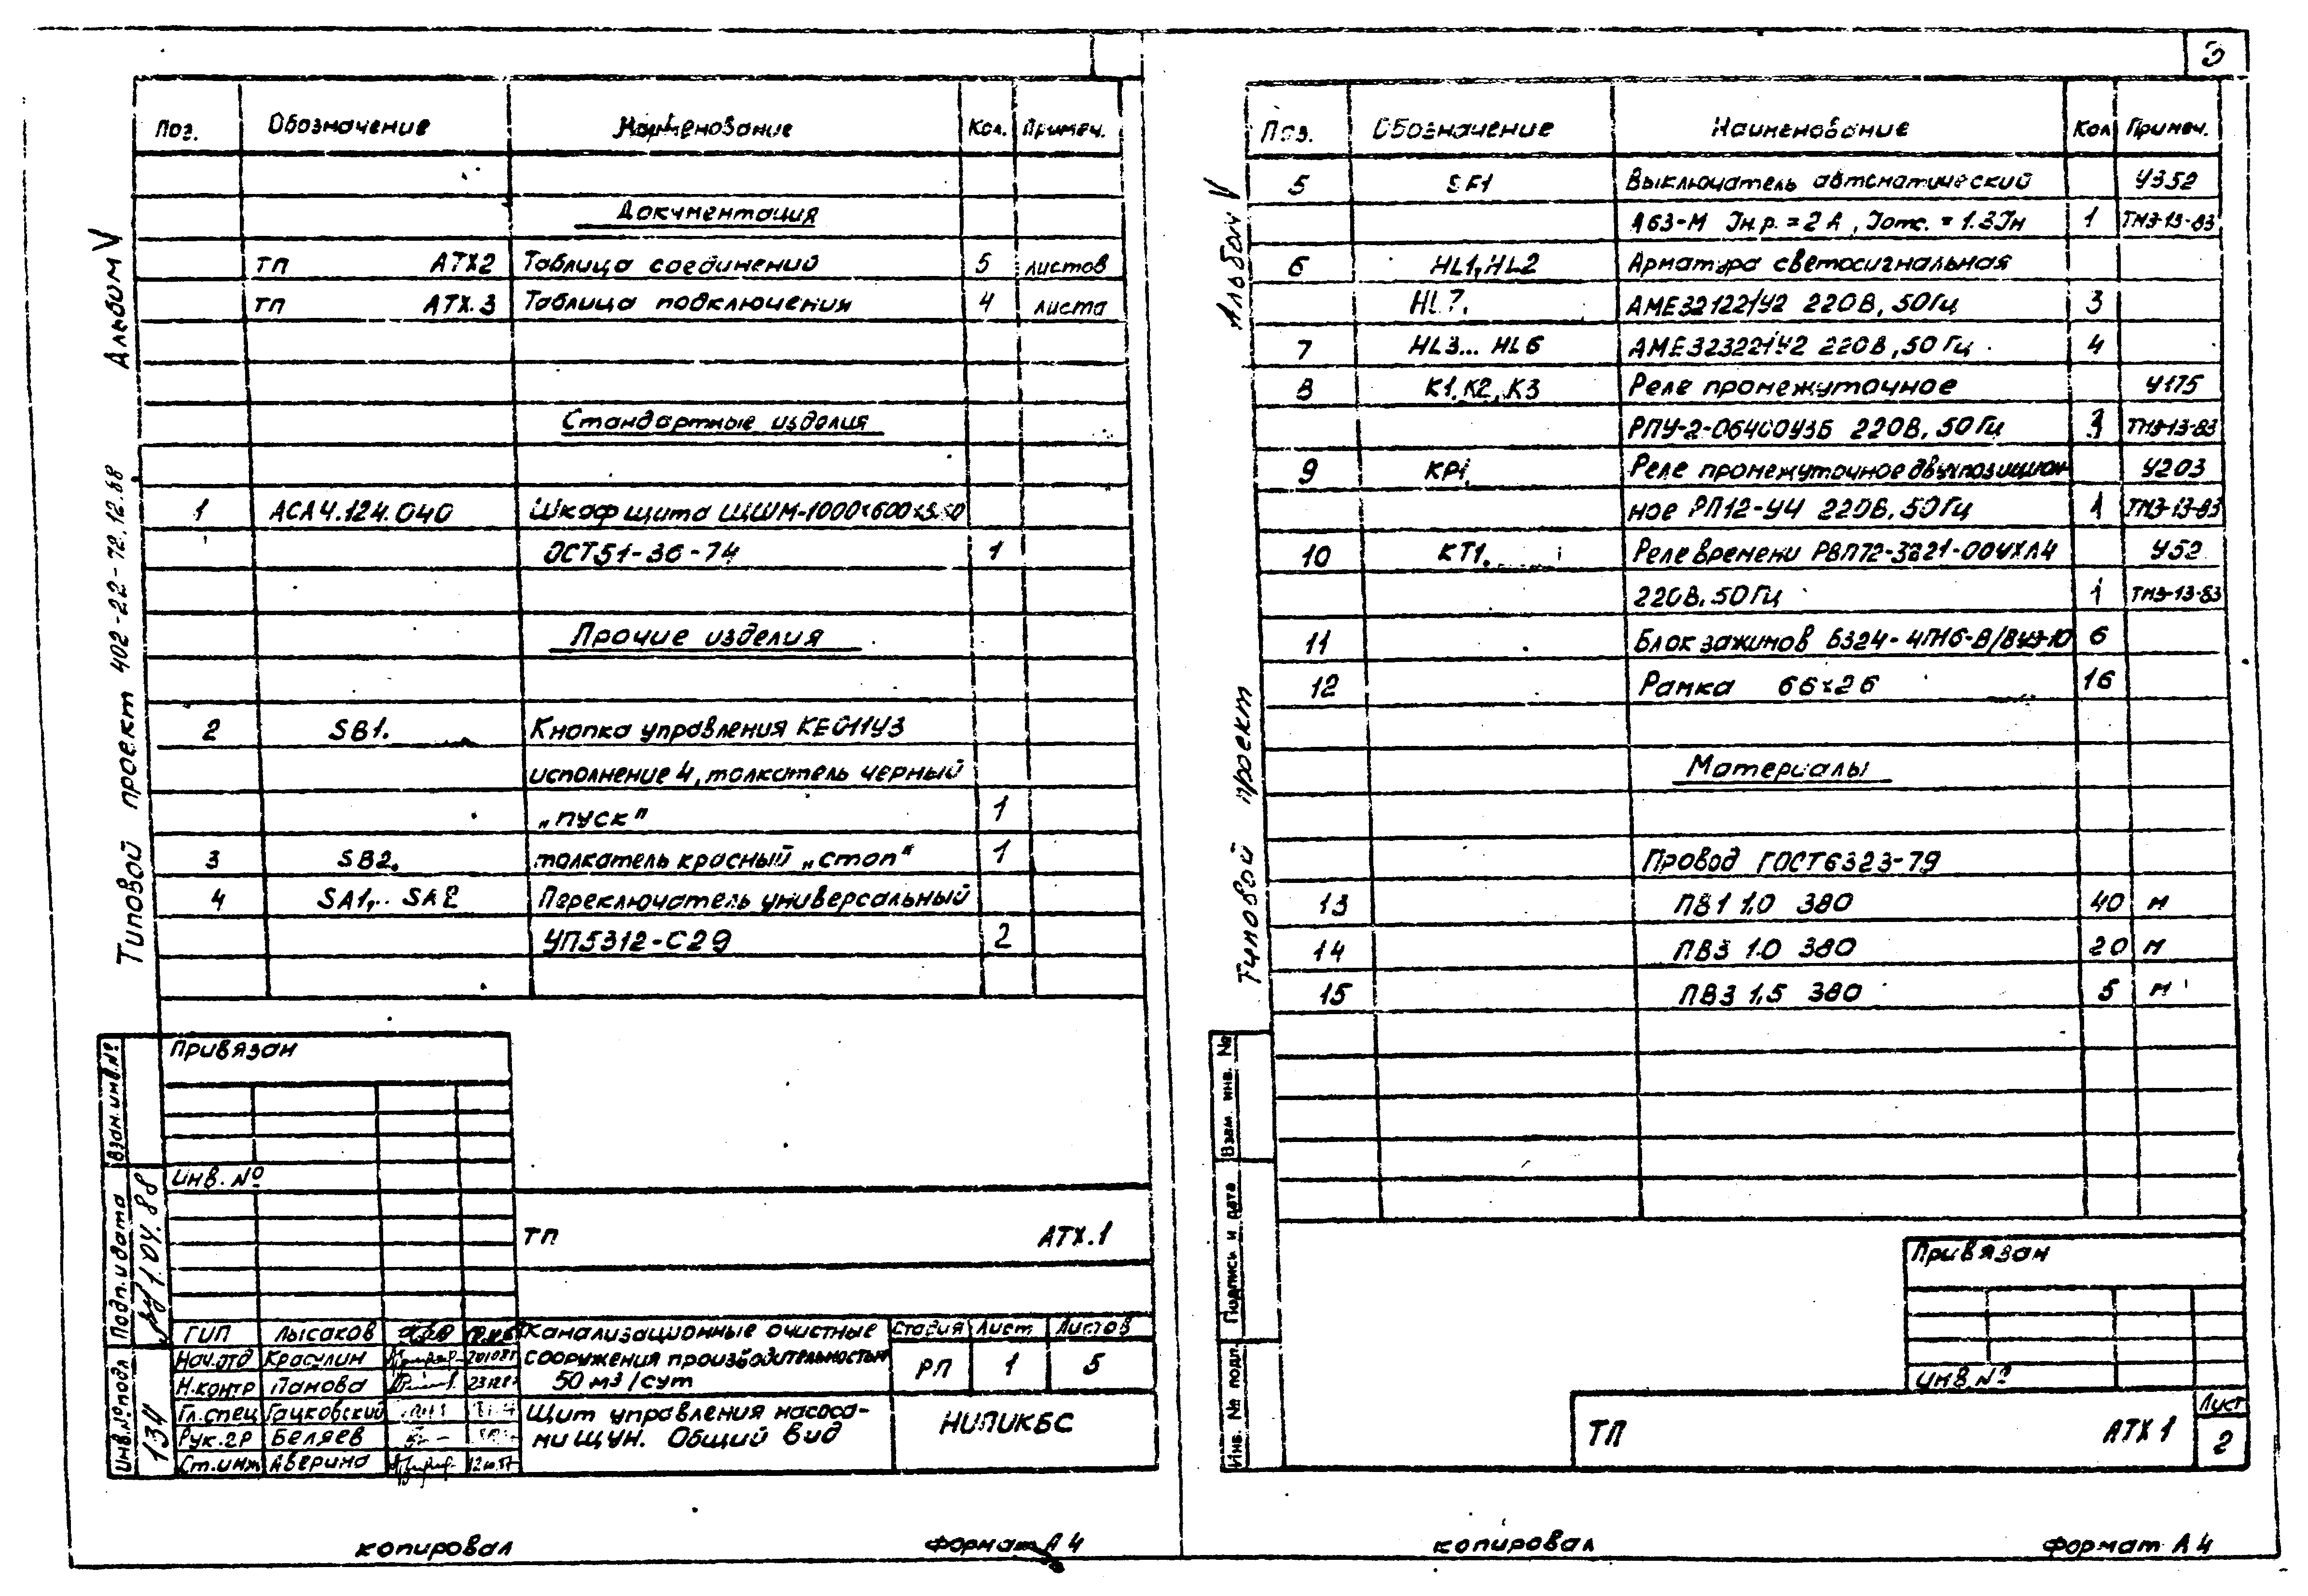 Альбом V
Типовой проект 402-22-72.12.88
Поз. Обозначение Наименование Кол. Примеч.
Документация
ТП АТХ2 Таблица соединений 5 листов
ТП АТХ.3 Таблица подключения 4 листа
Стандартные изделия
1 АСА4.124.040 Шкаф щита ЩШМ-1000х600х
ОСТ51-36-74 1
Прочие изделия
2 SB1. Кнопка управления КЕ011У3
исполнение 4, толкатель черный
„пуск" 1
3 SB2. толкатель красный „стоп" 1
4 SA1,.. SA2 Переключатель универсальный
УП5312-С29 2
Привязан
Инв. №
Взам.инв.№
Подп.и дата
1.04.88
Инв.№подл
134
ТП АТХ.1
ГИП Лысаков
Нач.отд Красулин
Н.контр Панова
Гл.спец Гацковский
Рук.гр Беляев
Ст.инж Аверина
Канализационные очистные
сооружения производительностью
50 м3/сут
Стадия Лист Листов
РП 1 5
Щит управления насоса-
ми ЩУН. Общий вид
НИПИКБС
копировал Формат А4
3
Альбом V
Типовой проект
Поз. Обозначение Наименование Кол Примеч.
5 SF1 Выключатель автоматический У352
А63-М Iн.р. = 2А, Iотс. = 1.3Iн 1 ТМЗ-13-83
6 HL1, HL2 Арматура светосигнальная
HL7. АМЕ32122/У2 220В, 50Гц 3
7 HL3... HL6 АМЕ323221У2 220В, 50Гц 4
8 К1, К2, К3 Реле промежуточное У175
РПУ-2-06400У3Б 220В, 50Гц 3 ТМЗ-13-83
9 КР1. Реле промежуточное двухпозицион У203
ное РП12-У4 220В, 50Гц 1 ТМЗ-13-83
10 КТ1. Реле времени РВП72-3221-00УХЛ4 У52
220В, 50Гц 1 ТМЗ-13-83
11 Блок зажимов БЗ24-4П16-В/ВУ3-10 6
12 Рамка 66х26 16
Материалы
Провод ГОСТ6323-79
13 ПВ1 1.0 380 40 м
14 ПВ3 1.0 380 20 м
15 ПВ3 1,5 380 5 м
Взам. инв. №
Подпись и дата
Инв. № подл.
Привязан
Инв. №
ТП АТХ1
Лист
2
копировал Формат А4